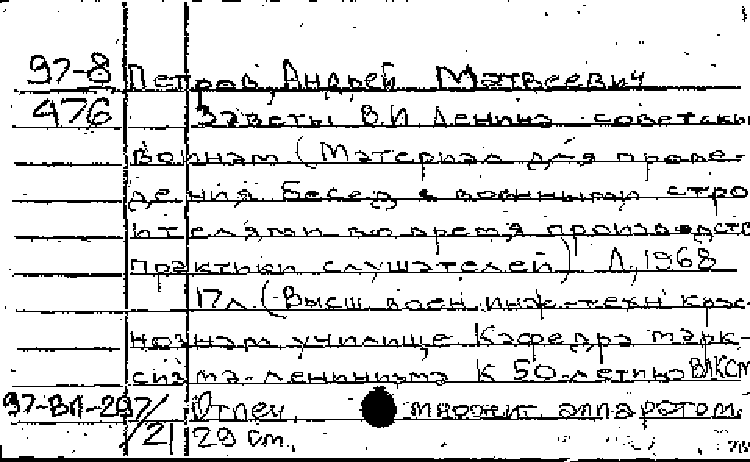 97-8 Петров, Андрей Матвеевич
476 Заветы В.И. Ленина советским
воинам (Материал для прове-
дения бесед с военными стро
ителями во время производств
практики слушателей) Л, 1968
17л (Высш воен инж-техн крас
нознам училище Кафедра марк-
сизма-ленинизма К 50-летию ВЛКСМ
97-ВЛ-297/ Отпеч. множит аппаратом.
/21 29 см.